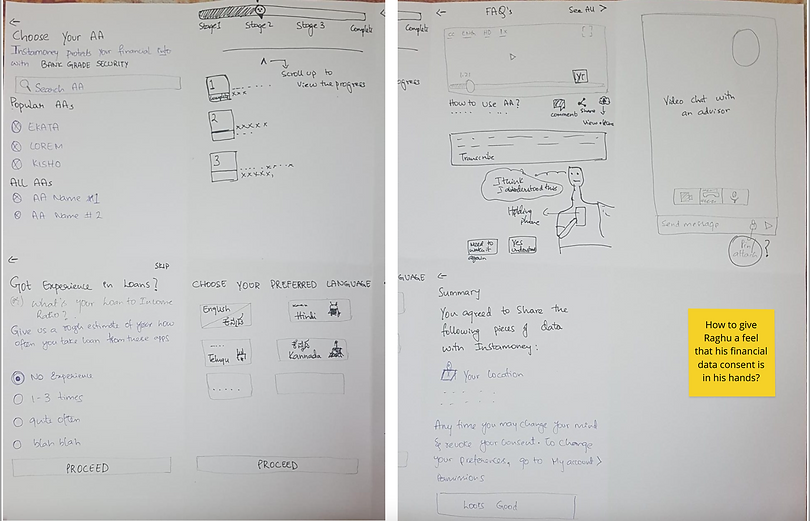 Choose Your AA
Instamoney protects your financial info
with BANK GRADE SECURITY
Search AA
Popular AAs
EKATA
LOREM
KISHO
All AAs
AA Name #1
AA Name #2
Stage 1
Stage 2
Stage 3
Complete
Scroll up to
view the progress
1
complete
xxx
2
xxxxx
3
xxxxx,
SKIP
Got Experience in Loans?
What's your Loan to Income
Ratio?
Give us a rough estimate of your how
often you take loan from these apps
No Experience
1-3 times
quite often
blah blah
PROCEED
CHOOSE YOUR PREFERRED LANGUAGE
English
Hindi
Telugu
Kannada
PROCEED
Complete
ogress
GUAGE
FAQ's
See All >
How to use AA?
comment
share
Transcribe
I think
I understood this
Holding
phone
Need to
watch it
again
Yes
understood
Video chat with
an advisor
Send message
Pin/
attach
?
Summary
You agreed to share the
following pieces of data
with Instamoney:
Your Location
Any time you may change your mind
& revoke your consent. To change
your preferences, go to My account >
Permissions
Looks Good
How to give
Raghu a feel
that his financial
data consent is
in his hands?